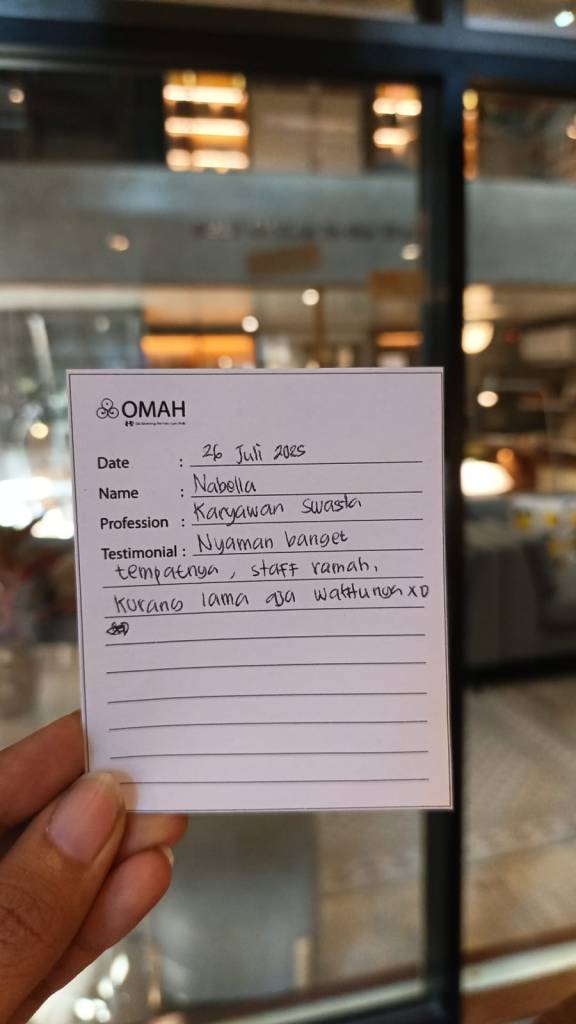 OMAH
Date : 26 Juli 2025
Name : Nabella
Profession : Karyawan swasta
Testimonial : Nyaman banget
tempatnya, staff ramah,
kurang lama aja waktunya XD